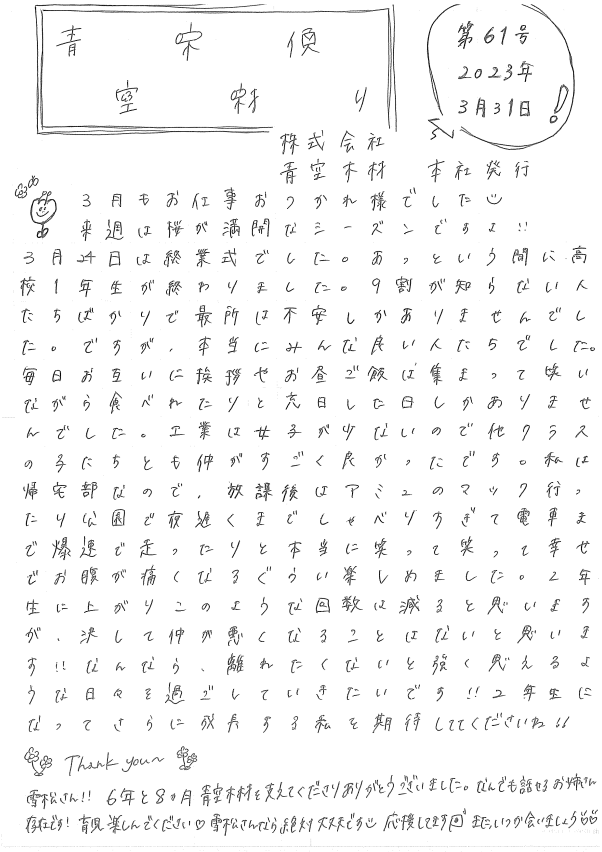 青空 木材 便り
第61号
2023年
3月31日!
株式会社
青空木材 本社発行
3月もお仕事おつかれ様でした
来週は桜が満開なシーズンですよ!!
3月24日は終業式でした。あっという間に高
校1年生が終わりました。9割が知らない人
たちばかりで最所は不安しかありませんでし
た。ですが、本当にみんな良い人たちでした。
毎日お互いに挨拶やお昼ご飯は集まって笑い
ながら食べれたりと充日した日しかありませ
んでした。工業は女子が少ないので他クラス
の子たちとも仲がすごく良かったです。私は
帰宅部なので、放課後はアミュのマック行っ
たり公園で夜遅くまでしゃべりすぎて電車ま
で爆速で走ったりと本当に笑って笑って幸せ
でお腹が痛くなるぐらい楽しめました。2年
生に上がりこのような回数は減ると思います
が、決して仲が悪くなることはないと思いま
す!!なんなら、離れたくないと強く思えるよ
うな日々を過ごしていきたいです!!2年生に
なってさらに成長する私を期待しててくださいね!!
Thank you~
雪松さん!! 6年と8ヵ月青空木材を支えてくださりありがとうございました。なんでも話せるお姉さん
存在です! 育児楽しんでください♡ 雪松さんなら絶対大丈夫です 応援してます またいつか会いましょう